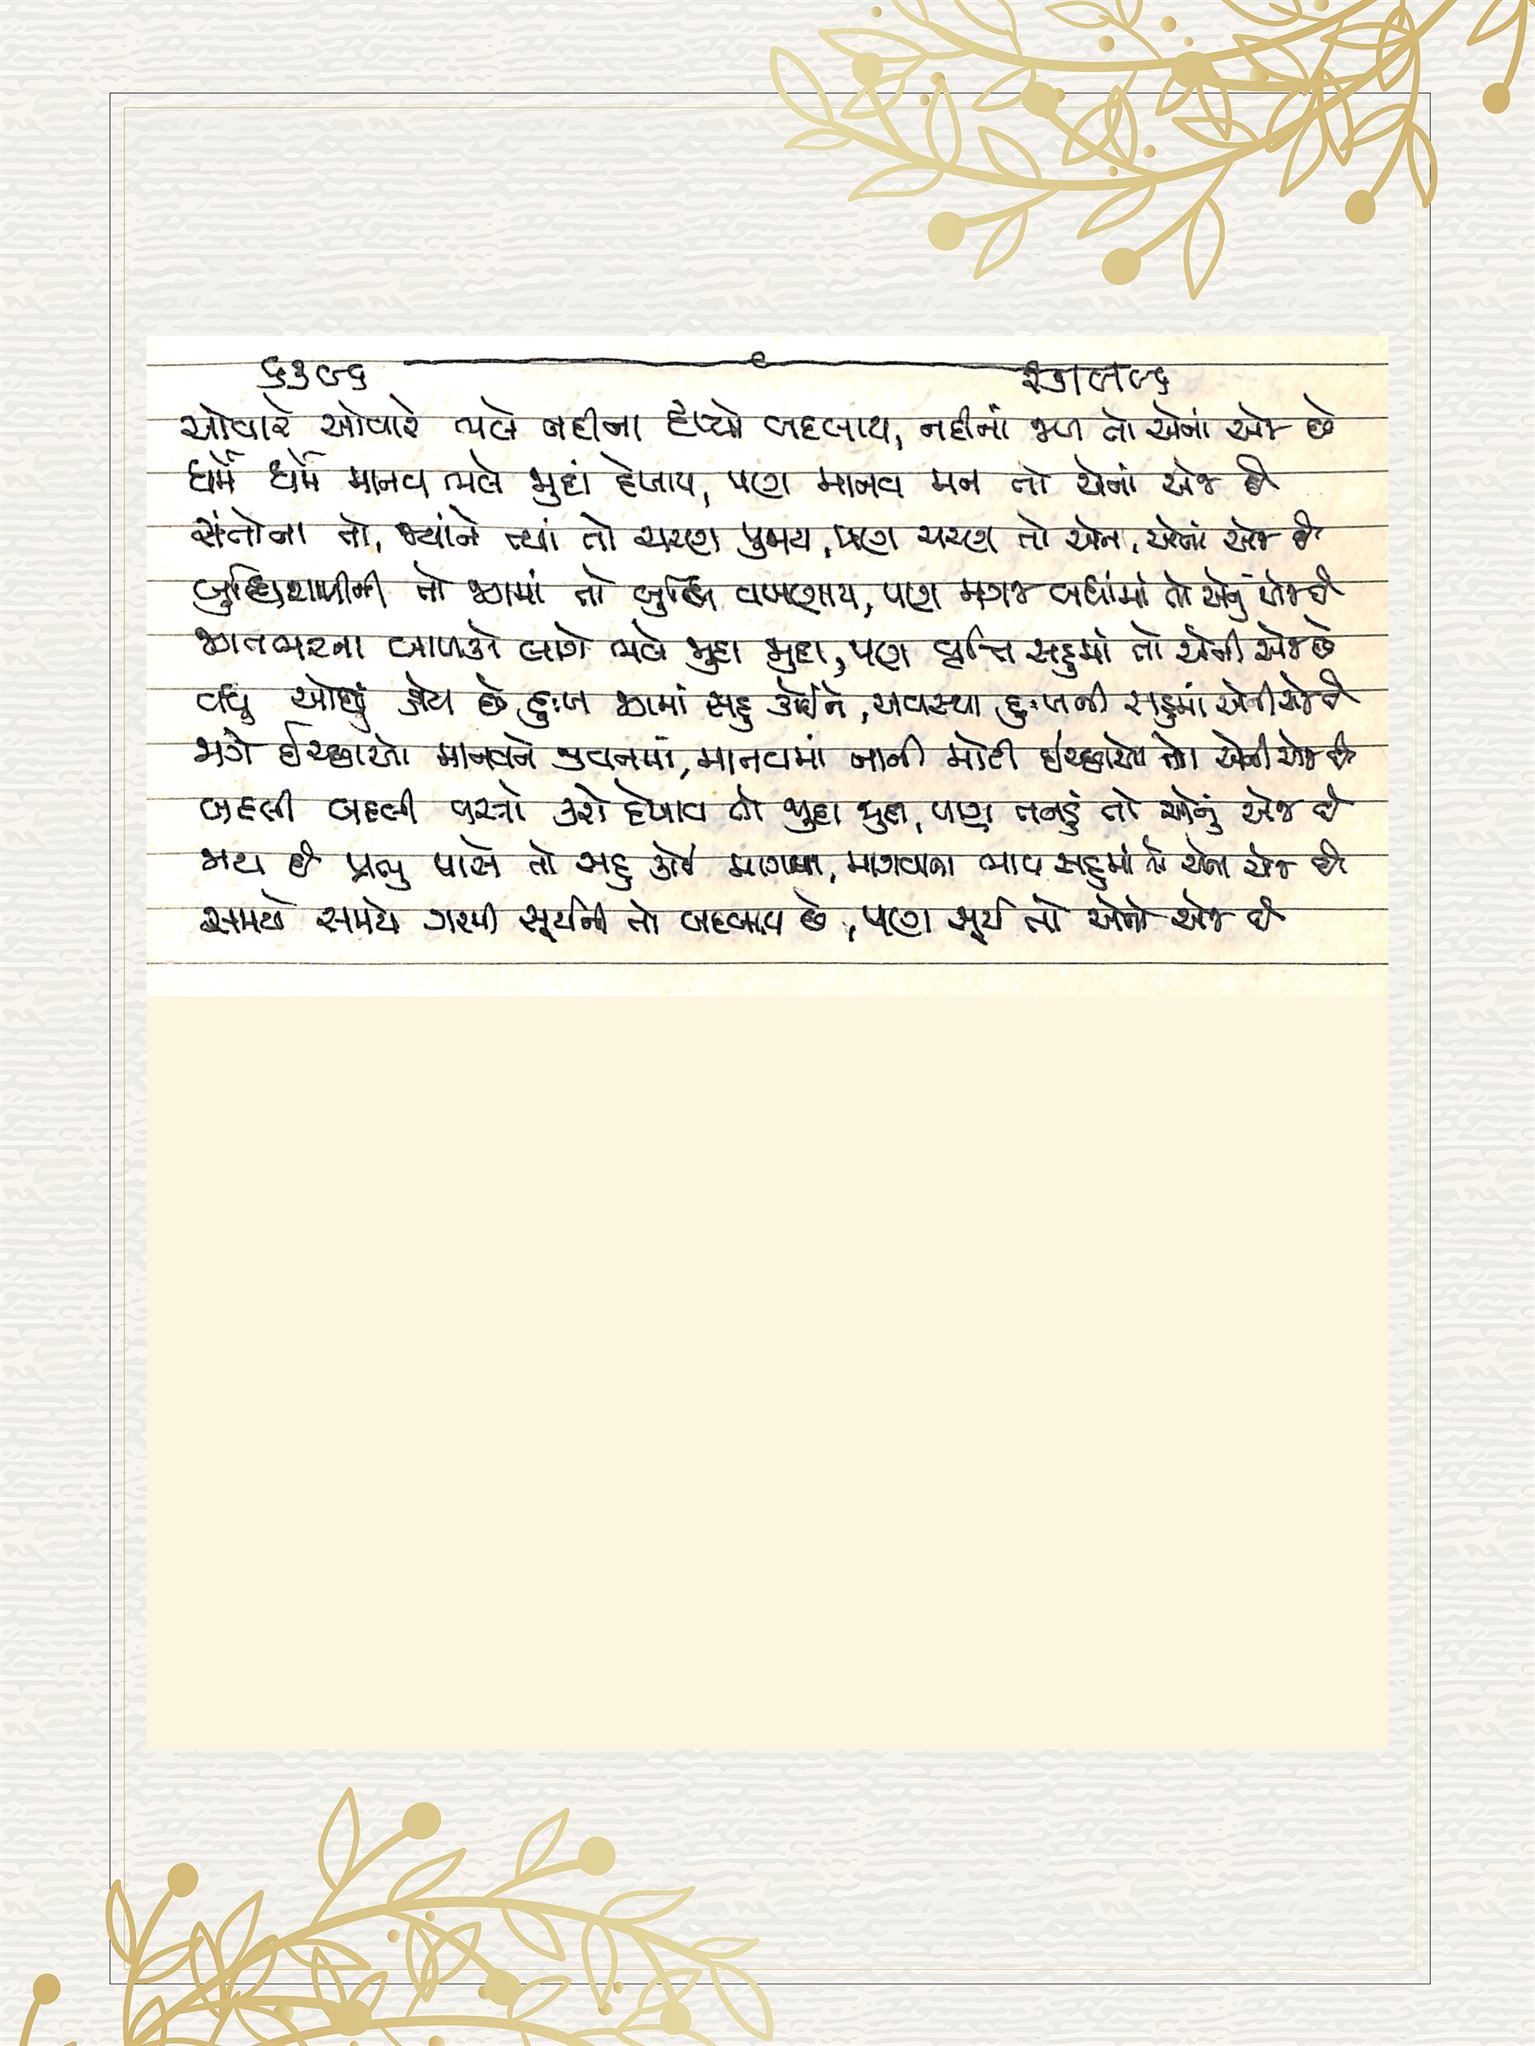 ઓવારે ઓવારે ભલે નદીના દૃશ્યો બદલાય, નદીનાં જળ તો એનાં એજ છે
ધર્મે ધર્મે માનવ ભલે જુદાં દેખાય, પણ માનવ મન તો એનાં એજ છે
સંતોના તો, જ્યાંને ત્યાં તો ચરણ પુજાય, પણ ચરણ તો એના, એનાં એજ છે
બુદ્ધિશાળીની તો જગમાં તો બુદ્ધિ વખણાય, પણ મગજ બધાંમાં તો એનું એજ છે
જગતભરના બાળકો લાગે ભલે જુદા જુદા, પણ વૃત્તિ સહુમાં તો એની એજ છે
વધુ ઓછું હોય છે દુઃખ જગમાં સહુ કોઈને, અવસ્થા દુઃખની સહુમાં એની એજ છે
જાગે ઈચ્છાઓ માનવને જીવનમાં, માનવમાં નાની મોટી ઈચ્છાઓ તો એની એજ છે
બદલી બદલી વસ્ત્રો કરો દેખાવ તો જુદા જુદા, પણ તનડું તો એનું એજ છે
જાય છે પ્રભુ પાસે તો સહુ કોઈ માગવા, માગવાના ભાવ સહુમાં તો એના એજ છે
સમયે સમયે ગરમી સૂર્યની તો બદલાય છે, પણ સૂર્ય તો એનો એજ છે